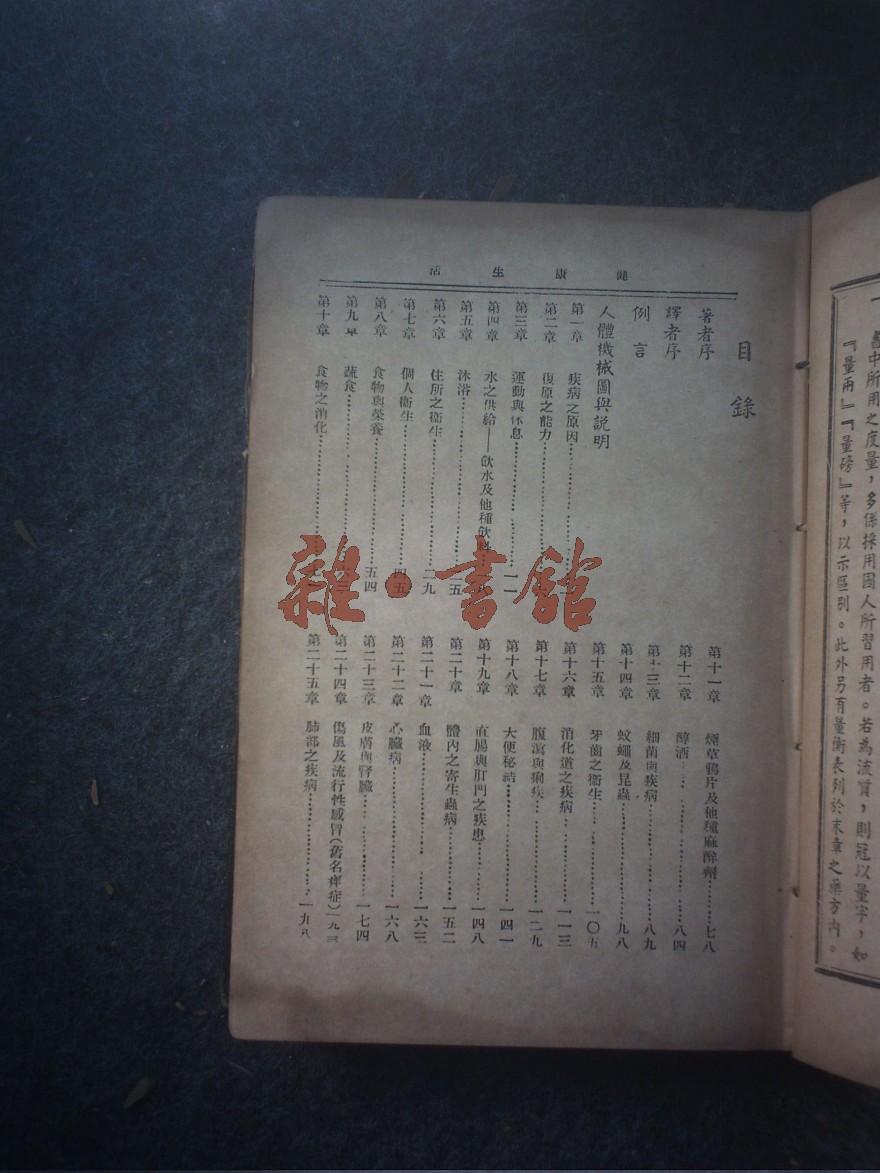 一
書中所用之度量，多係採用國人所習用者。若為流質，則冠以量字，如
『量兩』『量磅』等，以示區別。此外另有量衡表列於末章之藥方內。
健康生活
目錄
著者序
譯者序
例言
人體機械圖與說明
第一章 疾病之原因
第二章 復原之能力
第三章 運動與休息 一一
第四章 水之供給——飲水及他種飲料
第五章 沐浴 二五
第六章 住所之衛生 二九
第七章 個人衛生 四五
第八章 食物與榮養 五四
第九章 蔬食
第十章 食物之消化
第十一章 煙草鴉片及他種麻醉劑 七八
第十二章 醇酒 八四
第十三章 細菌與疾病 八九
第十四章 蚊蠅及昆蟲 九八
第十五章 牙齒之衛生 一〇五
第十六章 消化道之疾病 一一三
第十七章 腹瀉與痢疾 一二九
第十八章 大便秘結 一四一
第十九章 直腸與肛門之疾患 一四八
第二十章 體內之寄生蟲病 一五二
第二十一章 血液 一六三
第二十二章 心臟病 一六八
第二十三章 皮膚與腎臟 一七四
第二十四章 傷風及流行性感冒（舊名痺症） 一九三
第二十五章 肺部之疾病 一九八
雜·書館